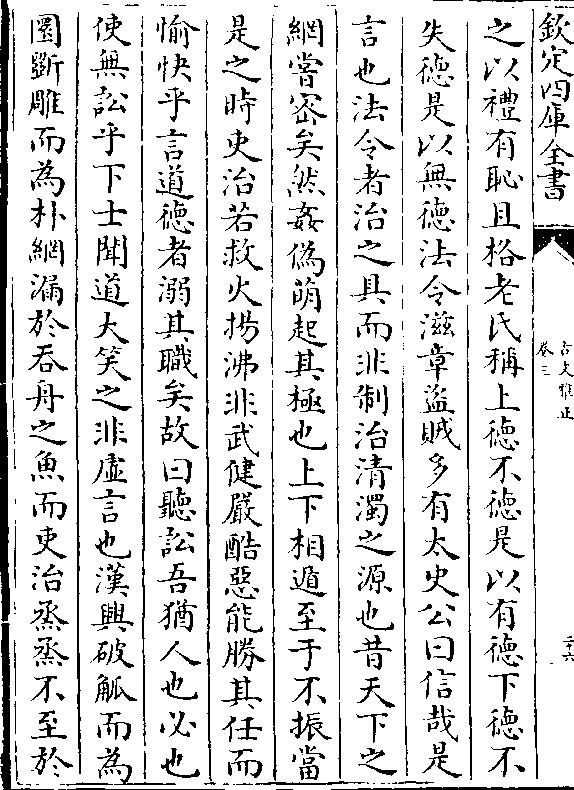 欽定四庫全書
古文雅正
卷三
二十六
之以禮有恥且格老氏稱上德不德是以有德下德不
失德是以無德法令滋章盜賊多有太史公曰信哉是
言也法令者治之具而非制治清濁之源也昔天下之
網嘗密矣然姦偽萌起其極也上下相遁至于不振當
是之時吏治若救火揚沸非武健嚴酷惡能勝其任而
愉快乎言道德者溺其職矣故曰聽訟吾猶人也必也
使無訟乎下士聞道大笑之非虛言也漢興破觚而為
圜斵雕而為朴網漏於吞舟之魚而吏治烝烝不至於